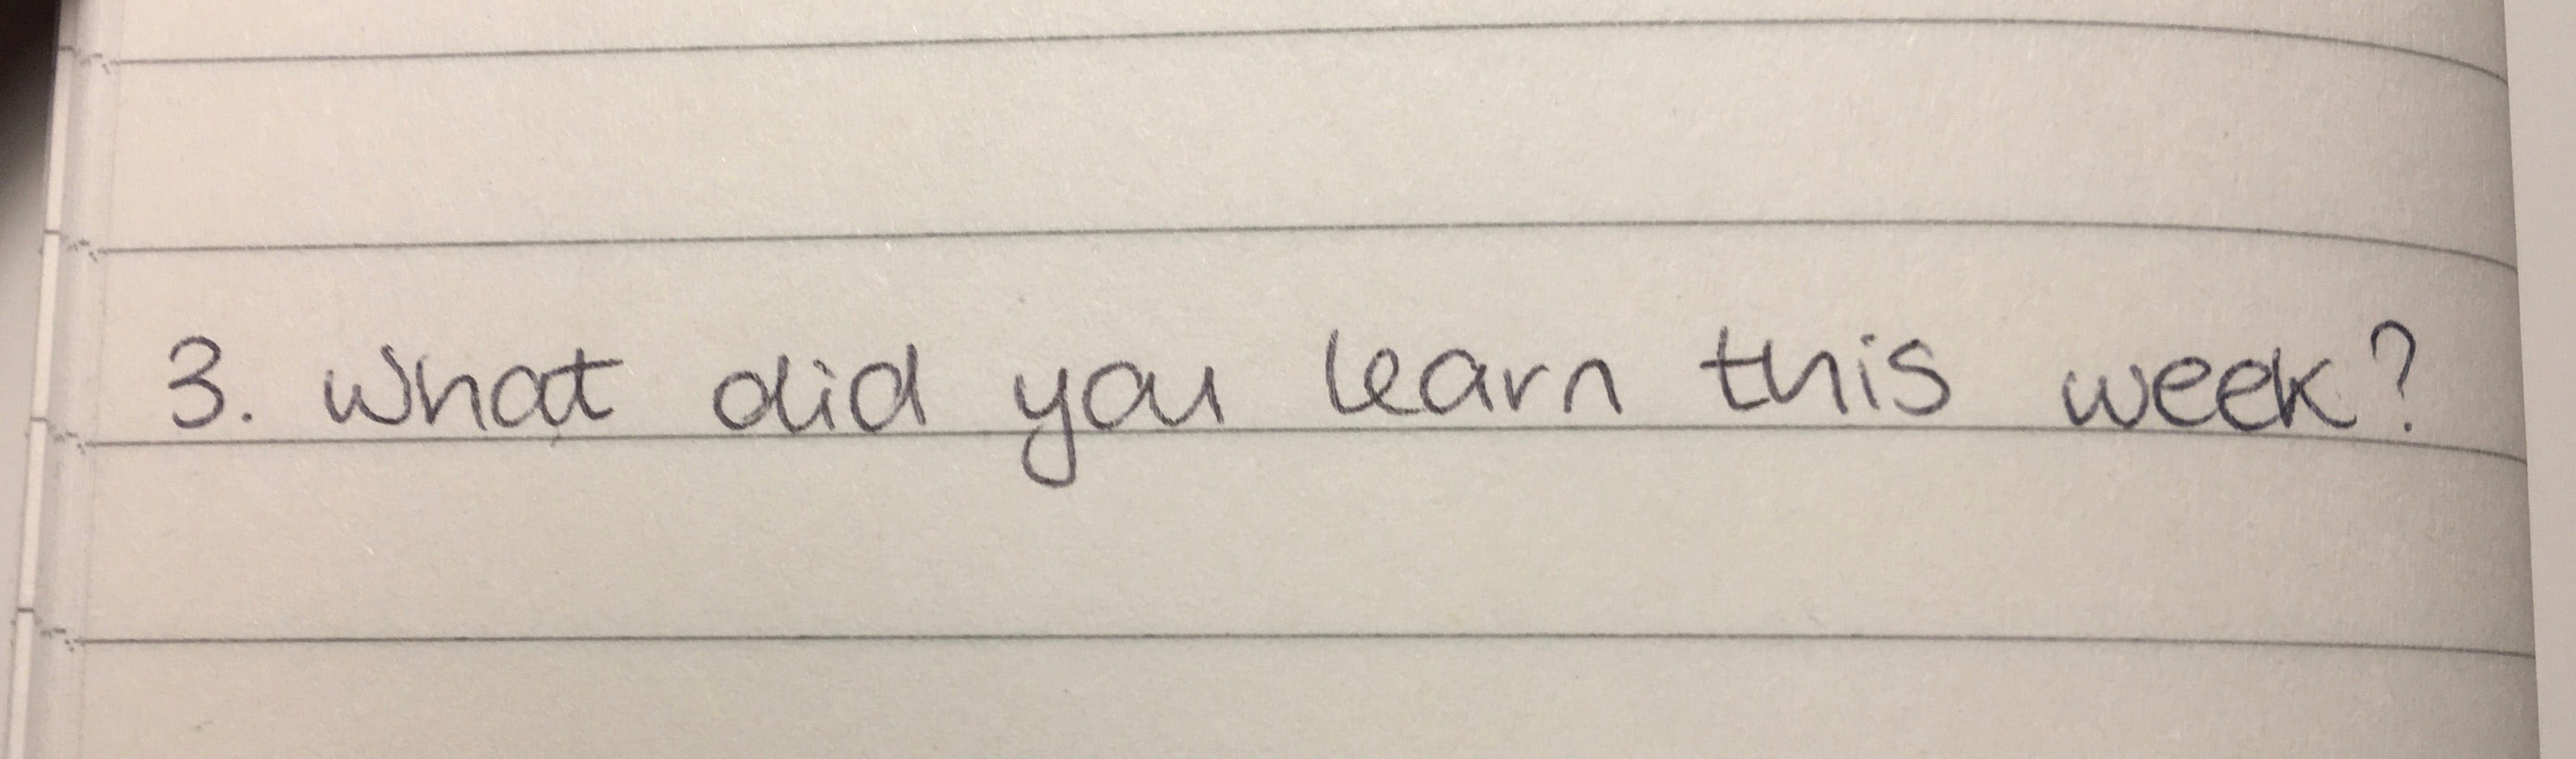 3. What did you learn this week?